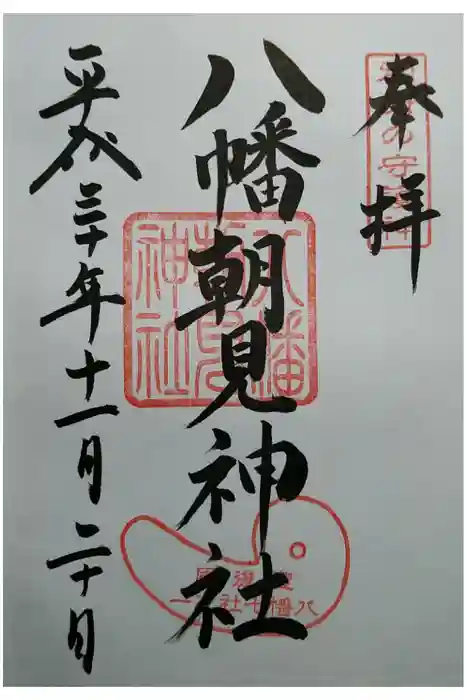 奉拝
八幡朝見神社
平成三十年十一月二十日
八幡朝見神社